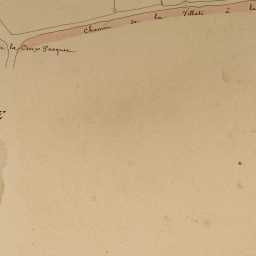 Chemin de la Villate à la
la Croix Pasquer